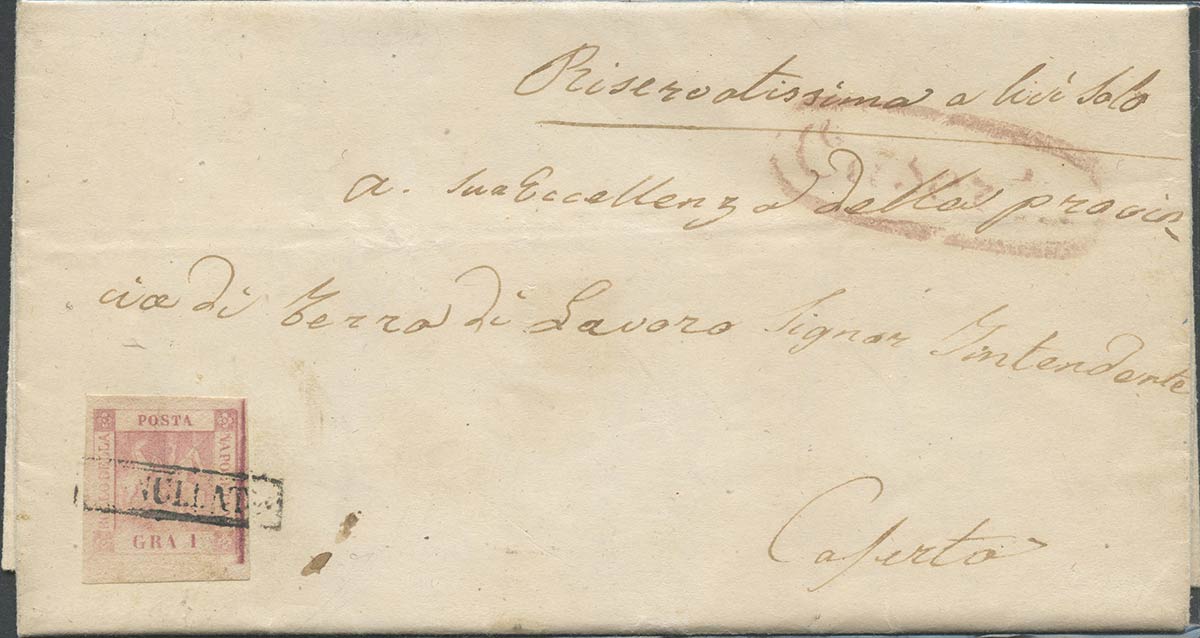 Riservatissima a lui solo
a. sua Eccellenza della provin
cia di Terra di Lavoro Signor Intendente
Caserta
POSTA
BOLLO DELLA
NAPO
GRA 1
NULLAT